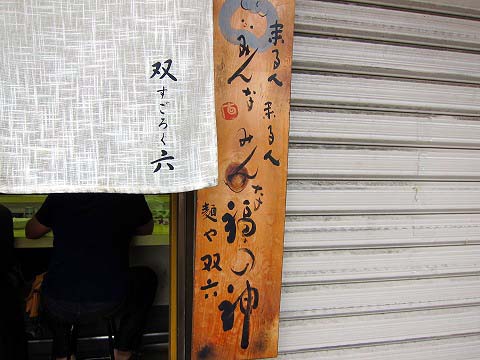 来る人
みんな
来る人
みんな
福の神
麺や 双六
双すごろく六